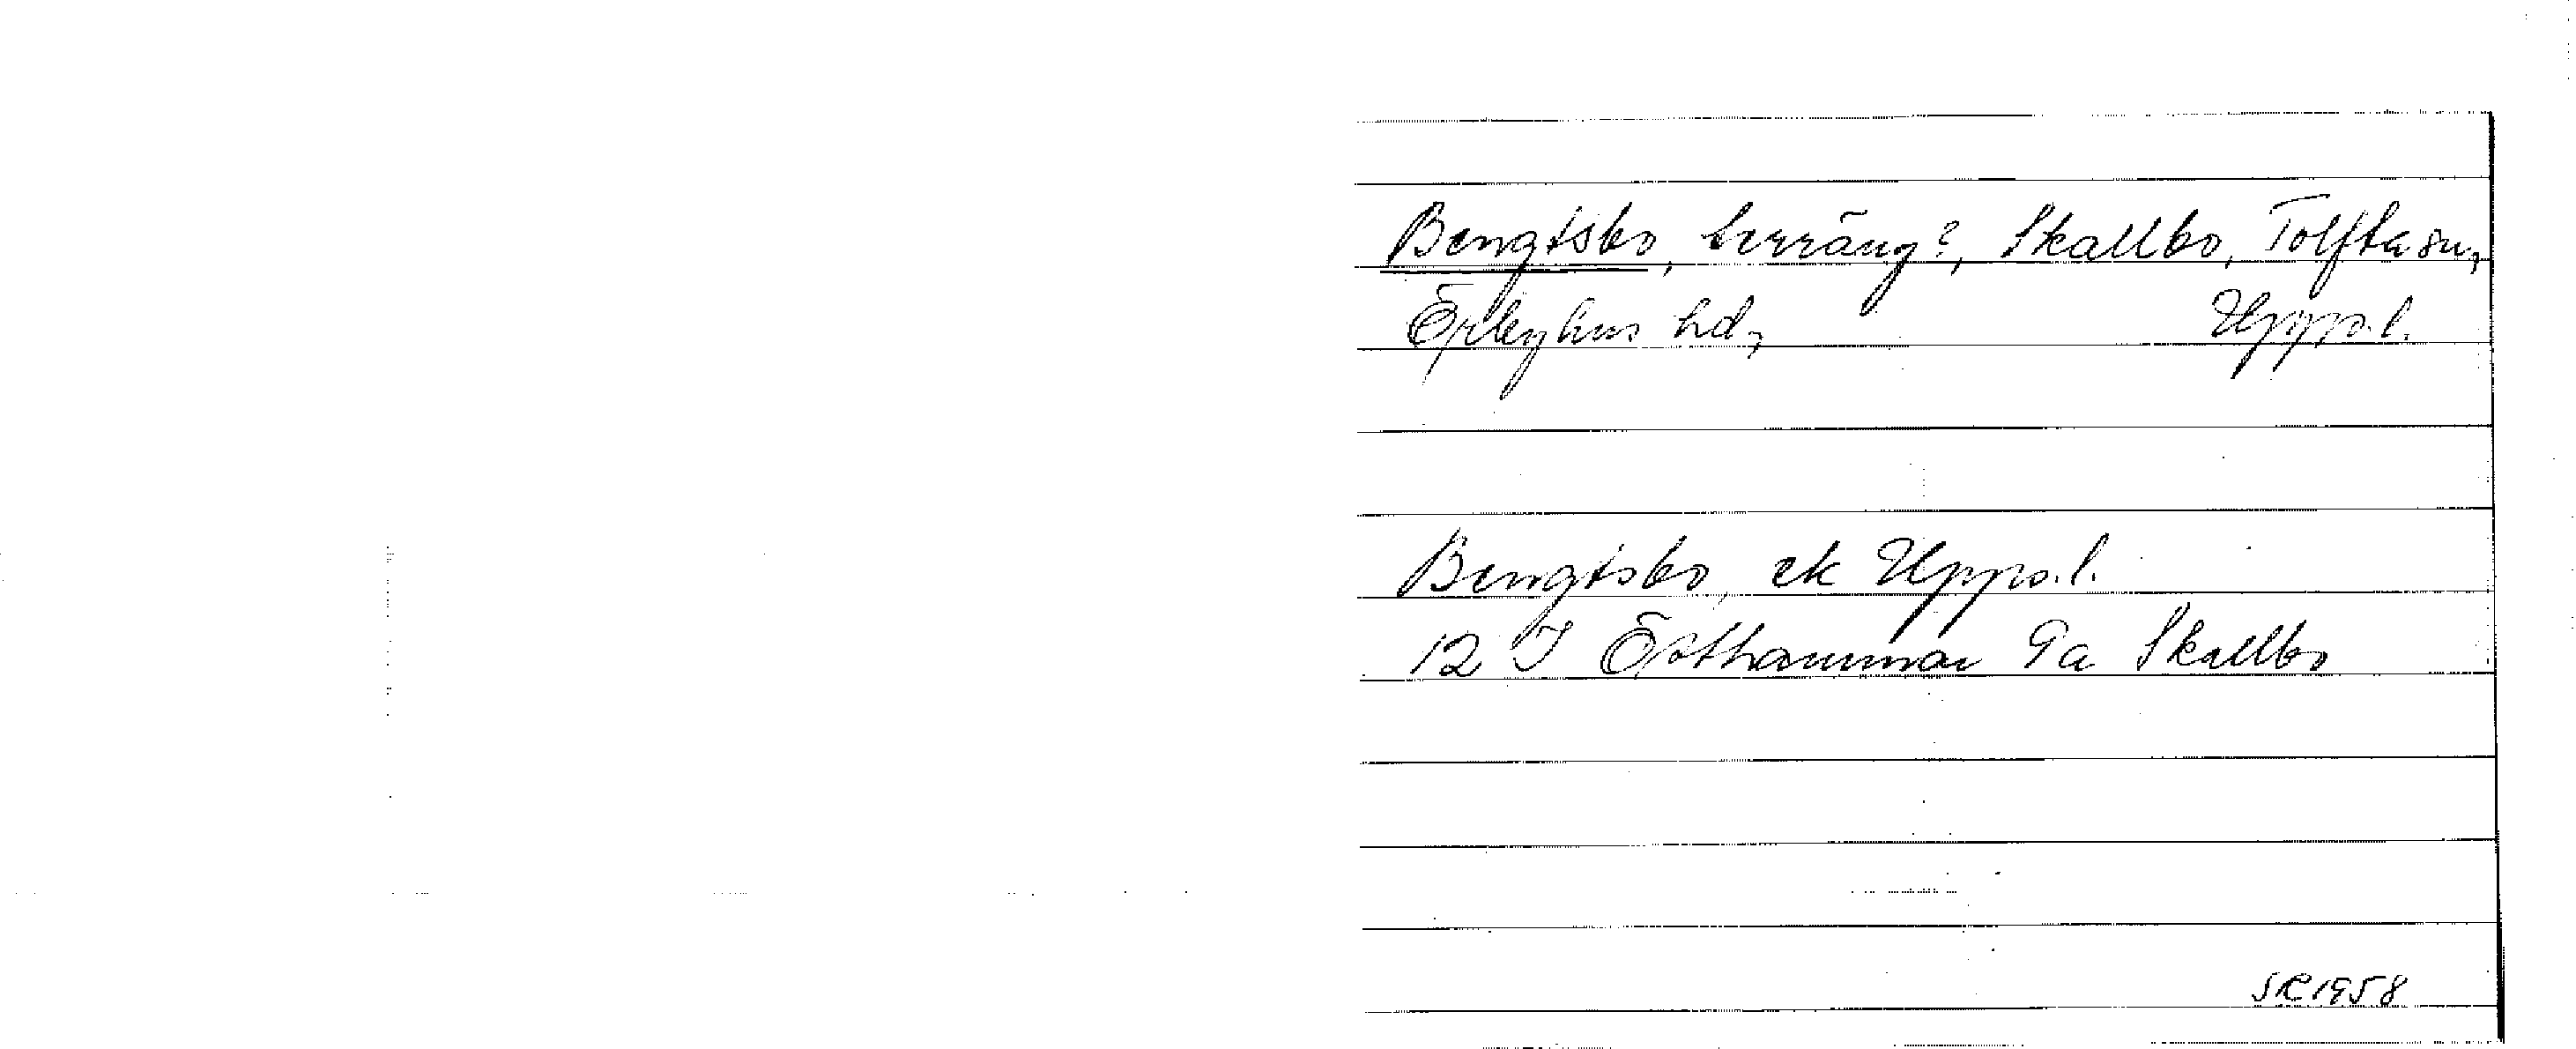 Bengtsbo, terräng?, Skallbo, Tolfta sn,
Örbyhus hd, Upps.l.
Bengtsbo, ek Upps.l.
12 I Östhammar 9a Skallbo
SR 1958